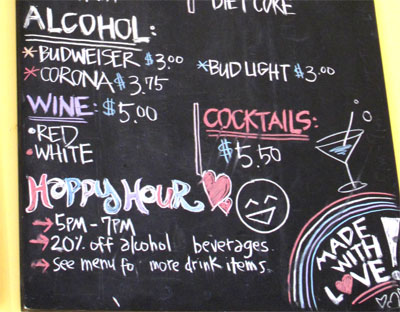 DIET COKE
ALCOHOL:
*BUDWEISER $3.00
*BUD LIGHT $3.00
*CORONA $3.75
WINE: $5.00
•RED
•WHITE
COCKTAILS:
$5.50
HAPPY HOUR
→ 5PM - 7PM
→ 20% off alcohol beverages
→ see menu fo more drink items.
MADE
WITH
LOVE!